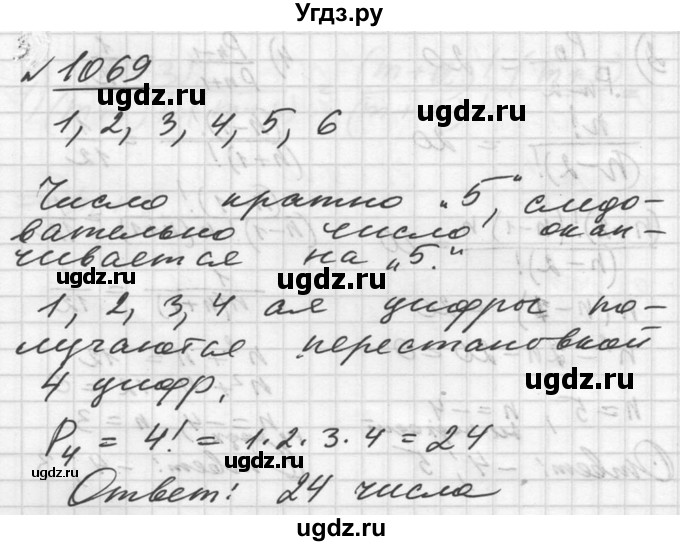 Угдз.ру
№ 1069
ugdz.ru ugdz.ru
1, 2, 3, 4, 5, 6
Число кратно „5,“ следо-
вательно число окан-
чивается на „5.“
ugdz.ru ugdz.ru
1, 2, 3, 4 ая цифры по-
лучаются перестановкой
4 цифр.
ugdz.ru
P₄ = 4! = 1·2·3·4 = 24
ugdz.ru ugdz.ru
Ответ: 24 числа
ugdz.ru